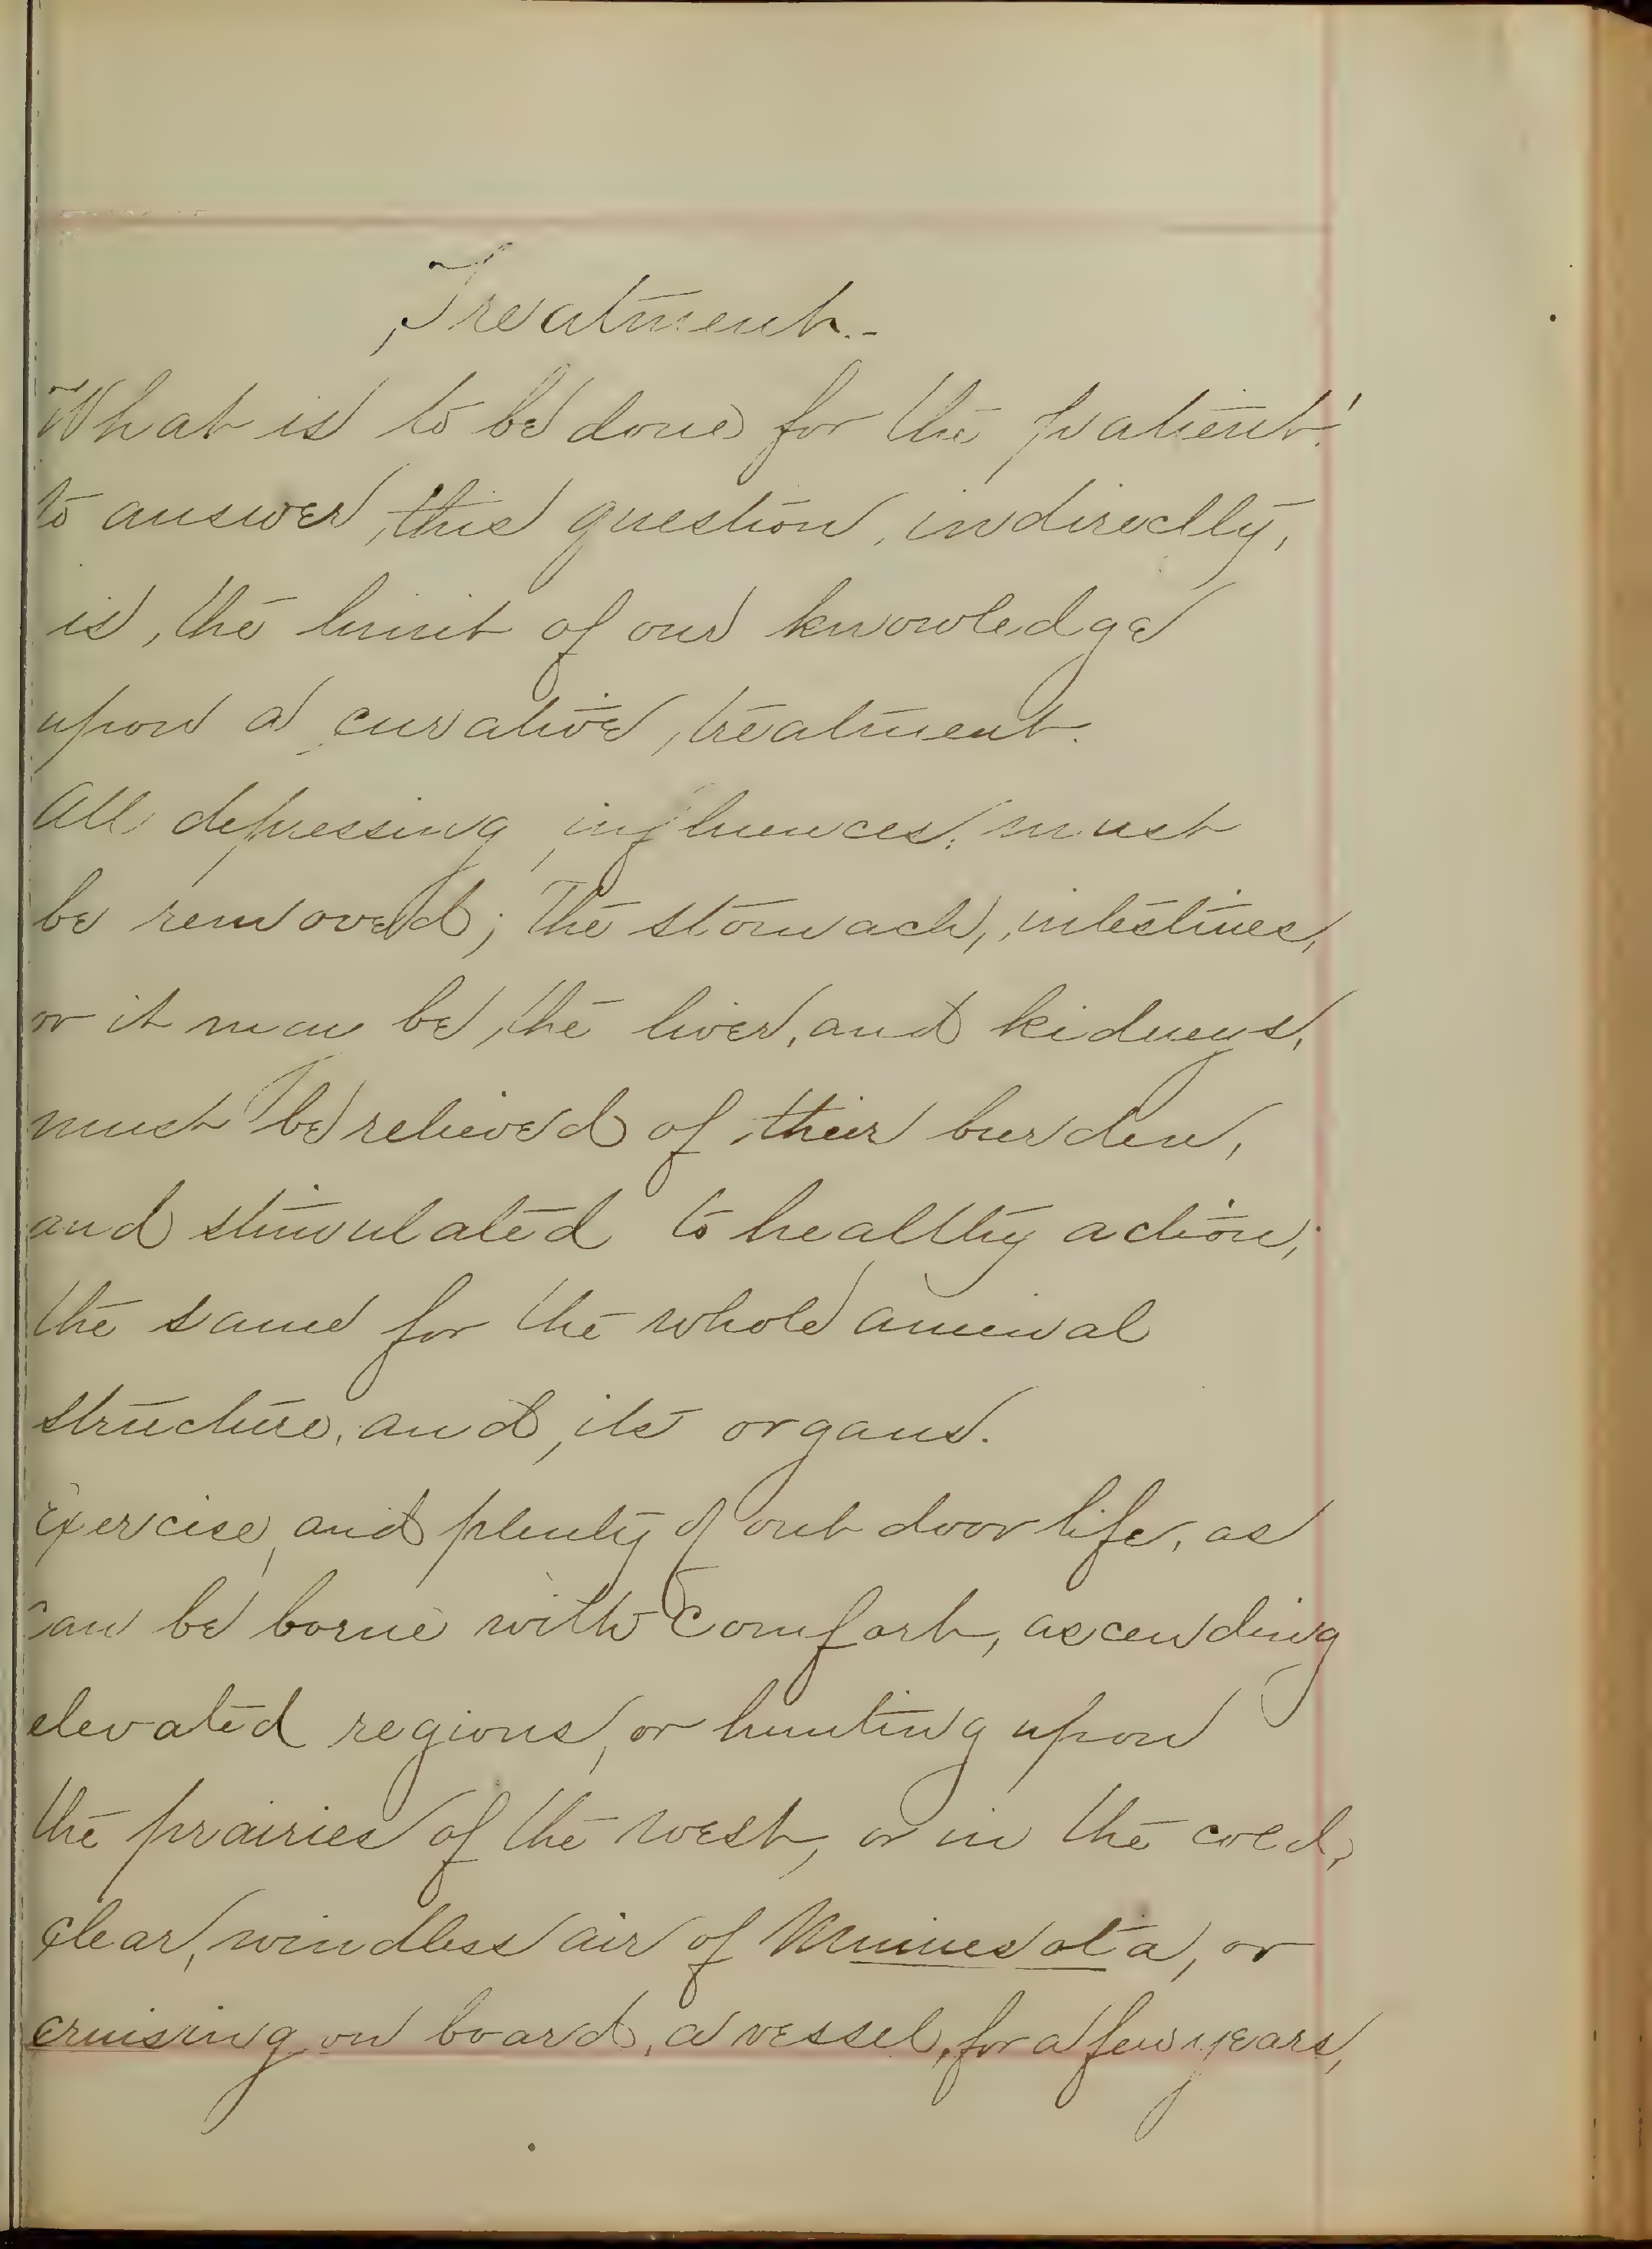 Treatment.-
What is to be done for the patient!
to answer, this question, indirectly,
is, the limit of our knowledge
upon a curative, treatment.
All depressing influences, must
be removed; The stomach, intestines,
or it may be, the liver, and kidneys,
must be relieved of their burden,
and stimulated to healthy action;
the same for the whole animal
structure, and its organs.
Exercise, and plenty of out door life, as
can be borne with Comfort, ascending
elevated regions, or hunting upon
the prairies of the west, or in the cold,
clear, windless air of Minnesota, or
cruising on board, a vessel, for a few years,